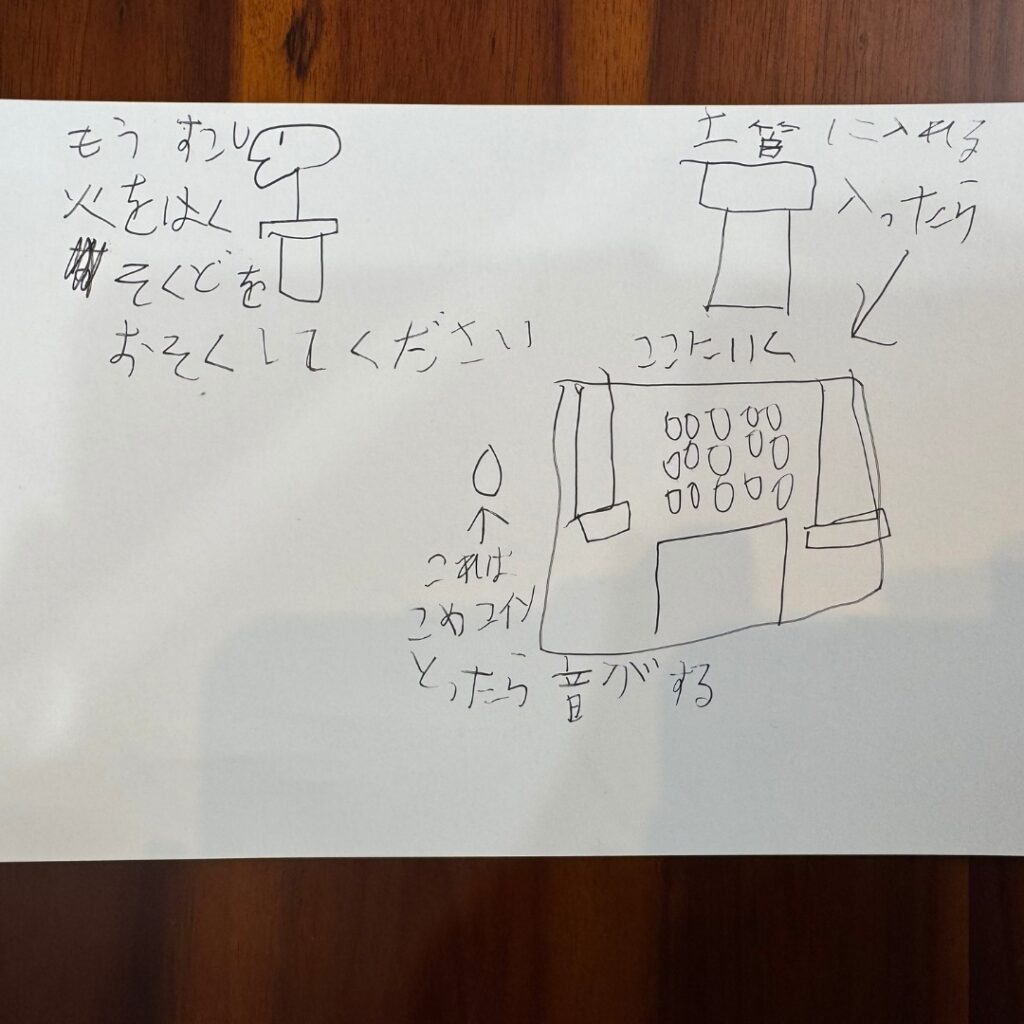 もうすこし
火をはく
そくどを
おそくしてください
土管に入れる
入ったら
ここにいく
これは
こめコイン
とったら音がする